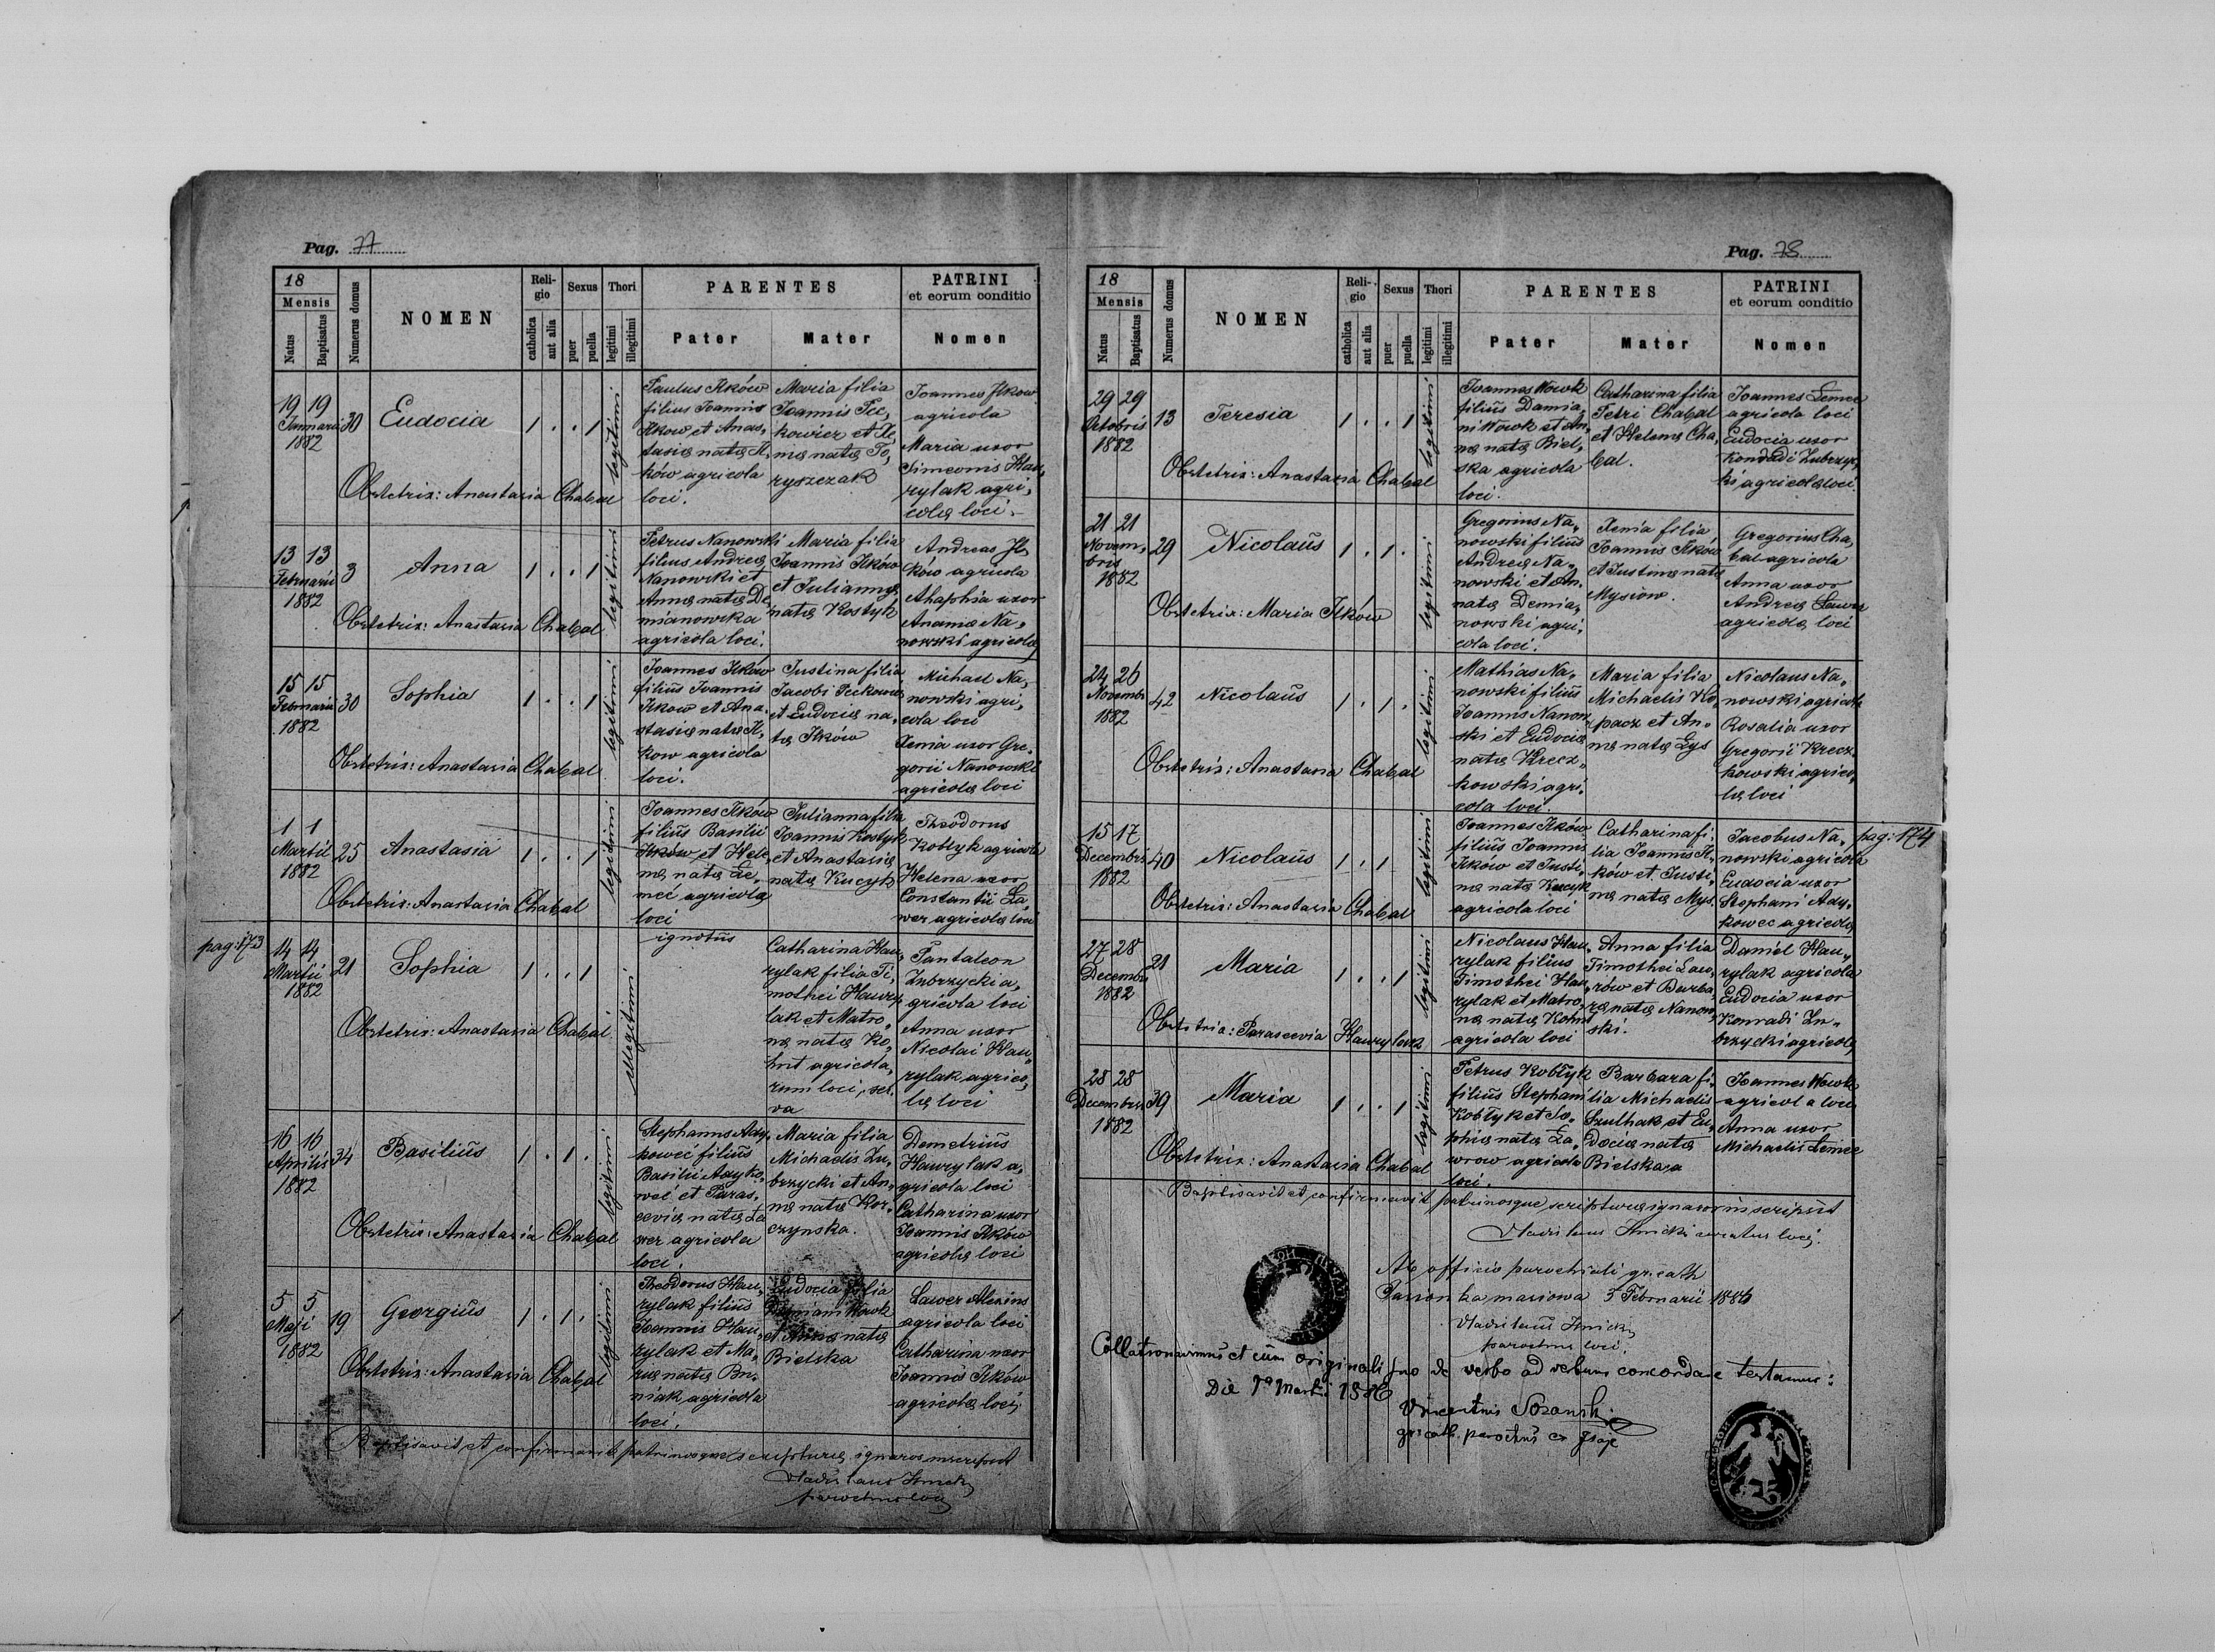 Pag. 77
18
Mensis
Natus
Baptisatus
Numerus domus
NOMEN
Reli-
gio
catholica
aut alia
Sexus
puer
puella
Thori
legitimi
illegitimi
PARENTES
Pater
Mater
PATRINI
et eorum conditio
Nomen
19 19
Januarii
1882
30
Eudocia
1 . . 1
legitimi
Paulus Ilków
filius Joannis
Ilkow et Anas,
tasiæ natæ Il,
ków agricola
loci.
Maria filia
Joannis Pec,
kowicz et Xe,
niæ natæ To,
ryszczak
Joannes Ilkow
agricola
Maria uxor
Simeonis Hau,
rylak agri,
colæ loci.
Obstetrix: Anastasia Chabal
13 13
Februarii
1882
3
Anna
1 . . 1
legitimi
Petrus Nanowski
filius Andreæ
Nanowski et
Annæ natæ De,
mianowska
agricola loci.
Maria filia
Joannis Ilków
et Juliannæ
natæ Kostyk
Andreas Il,
ków agricola
Ahaphia uxor
Ananiæ Na,
nowski agricolæ
Obstetrix: Anastasia Chabal
15 15
Februarii
1882
30
Sophia
1 . . 1
legitimi
Joannes Ilków
filius Joannis
Ilkow et Ana,
stasiæ natæ Il,
kow agricola
loci.
Justina filia
Jacobi Peckowicz
et Eudociæ na,
tæ Ilków
Michael Na,
nowski agri,
cola loci
Xenia uxor Gre,
gorii Nanowski
agricolæ loci
Obstetrix: Anastasia Chabal
1 1
Martii
1882
25
Anastasia
1 . . 1
legitimi
Joannes Ilków
filiūs Basilii
Ilków et Hele,
næ natæ Le,
meć agricola
loci
Julianna filia
Joannis Kostyk
et Anastasiæ
natæ Kucyk
Theodorus
Kobłyk agricola
Helena uxor
Constantii La,
wer agricolæ loci
Obstetrix: Anastasia Chabal
pag: 173
14 14
Martii
1882
21
Sophia
1 . . 1
illegitimi
ignotūs
Catharina Hau,
rylak filia Ti,
mothei Hawry,
lak et Matro,
næ natæ Ko,
hut agricola,
rum loci, ser,
va
Pantaleon
Zubrzycki a,
gricola loci
Anna uxor
Nicolai Hau,
rylak agrico,
læ loci
Obstetrix: Anastasia Chabal
16 16
Aprilis
1882
34
Basiliūs
1 . 1 .
legitimi
Stephanus Ady,
kowec filiūs
Basilii Adyko,
wec et Paras,
ceviæ natæ La
wer agricola
loci.
Maria filia
Michaelis Zu,
brzycki et An,
næ natæ Kor,
czynska.
Demetriūs
Hawrylak a,
gricola loci
Catharina uxor
Joannis Ilków
agricolæ loci
Obstetrix: Anastasia Chabal
5 5
Maji
1882
19
Georgiūs
1 . 1 .
legitimi
Theodorus Hau,
rylak filiūs
Joannis Hau,
rylak et Ma,
riæ natæ Bu,
niak agricola
loci.
Eudocia filia
Damiani Wowk
et Annæ natæ
Bielska
Lawer Alexius
agricola loci
Catharina uxor
Joannis Ilków
agricolæ loci.
Obstetrix: Anastasia Chabal
Baptisavit et confirmavit patrinosque scripturæ ignaros inscripsit
Vladislaus Ilnicki
parochus loci
Pag. 78
18
Mensis
Natus
Baptisatus
Numerus domus
NOMEN
Reli-
gio
catholica
aut alia
Sexus
puer
puella
Thori
legitimi
illegitimi
PARENTES
Pater
Mater
PATRINI
et eorum conditio
Nomen
29 29
Octobris
1882
13
Teresia
1 . . 1
legitimi
Joannes Wowk
filiūs Damia,
ni Wowk et An,
næ natæ Biel,
ska agricola
loci.
Catharina filia
Petri Chabal
et Helenæ Cha,
bal.
Joannes Lemec
agricola loci
Eudocia uxor
Kondradi Zubrzyc,
ki agricolæ loci.
Obstetrix: Anastasia Chabal
21 21
Novem,
bris
1882
29
Nicolaūs
1 . 1 .
legitimi
Gregorius Na,
nowski filiūs
Andreæ Na,
nowski et An.
natæ Demia,
nowski agri,
cola loci.
Xenia filia
Joannis Ilków
et Justinæ natæ
Mysiow.
Gregorius Cha,
bal agricola
Anna uxor
Andreæ Lawer
agricolæ loci
Obstetrix: Maria Ilków
24 26
Novembr.
1882
42
Nicolaūs
1 . 1 .
legitimi
Mathias Na,
nowski filiūs
Joannis Nanow,
ski et Eudociæ
natæ Krecz,
kowski agri,
cola loci.
Maria filia
Michaelis Ko,
pacz et An,
næ natæ Łys
Nicolaus Na,
nowski agricola
Rosalia uxor
Gregorii Krecz,
kowski agrico,
læ loci
Obstetrix: Anastasia Chabal
15 17
Decembris
1882
40
Nicolaūs
1 . 1
legitimi
Joannes Ilków
filiūs Joannis
Ilków et Justi,
næ natæ Kucyk
agricola loci
Catharina fi,
lia Joannis Il,
ków et Justi,
næ natæ Mys.
Jacobus Na,
nowski agricola
Eudocia uxor
Stephani Ady,
kowec agricolæ
pag: 174
Obstetrix: Anastasia Chabal
27 28
Decembr.
1882
21
Maria
1 . . 1
legitimi
Nicolaus Hau,
rylak filiūs
Timothei Hau,
rylak et Matro,
næ natæ Kohut
agricola loci
Anna filia
Timothei Law,
rów et Barba,
ræ natæ Nanow,
ski.
Daniel Hau,
rylak agricola
Eudocia uxor
Konradi Zu,
brzycki agricolæ
Obstetrix: Parascevia Hawrylak
28 28
Decembris
1882
39
Maria
1 . . 1
legitimi
Petrus Kobłyk
filiūs Stephani
Kobłyk et So,
phiæ natæ La,
wrow agricola
loci.
Barbara fi,
lia Michaelis
Szulhak et Eu,
dociæ natæ
Bielskaja
Joannes Wowk
agricola loci
Anna uxor
Michaelis Lemec
Obstetrix: Anastasia Chabal
Baptisavit et confirmavit patrinosque scripturæ ignaros inscripsit
Vladislaus Ilnicki curatus loci.
Ab officio parochiali gr. cath
3 Februarii 1886
Vladislaus Ilnicki
parochus loci.
Collationavimus et cum originali suo de verbo ad verbum concordare testamur:
Die 1a Martii 1886
Vincentius Sozański
gr. cath. parochus